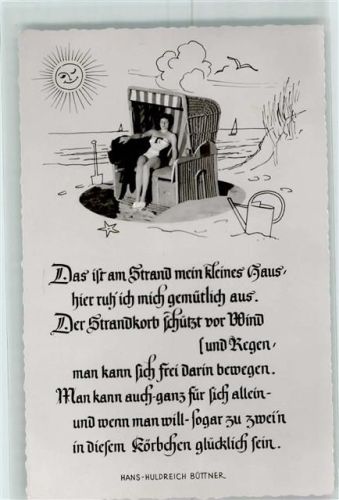 Das ist am Strand mein kleines Haus,
hier ruh' ich mich gemütlich aus.
Der Strandkorb schützt vor Wind
[und Regen,
man kann sich frei darin bewegen.
Man kann auch-ganz für sich allein-
und wenn man will-sogar zu zwei'n
in diesem Körbchen glücklich sein.
HANS-HULDREICH BÜTTNER